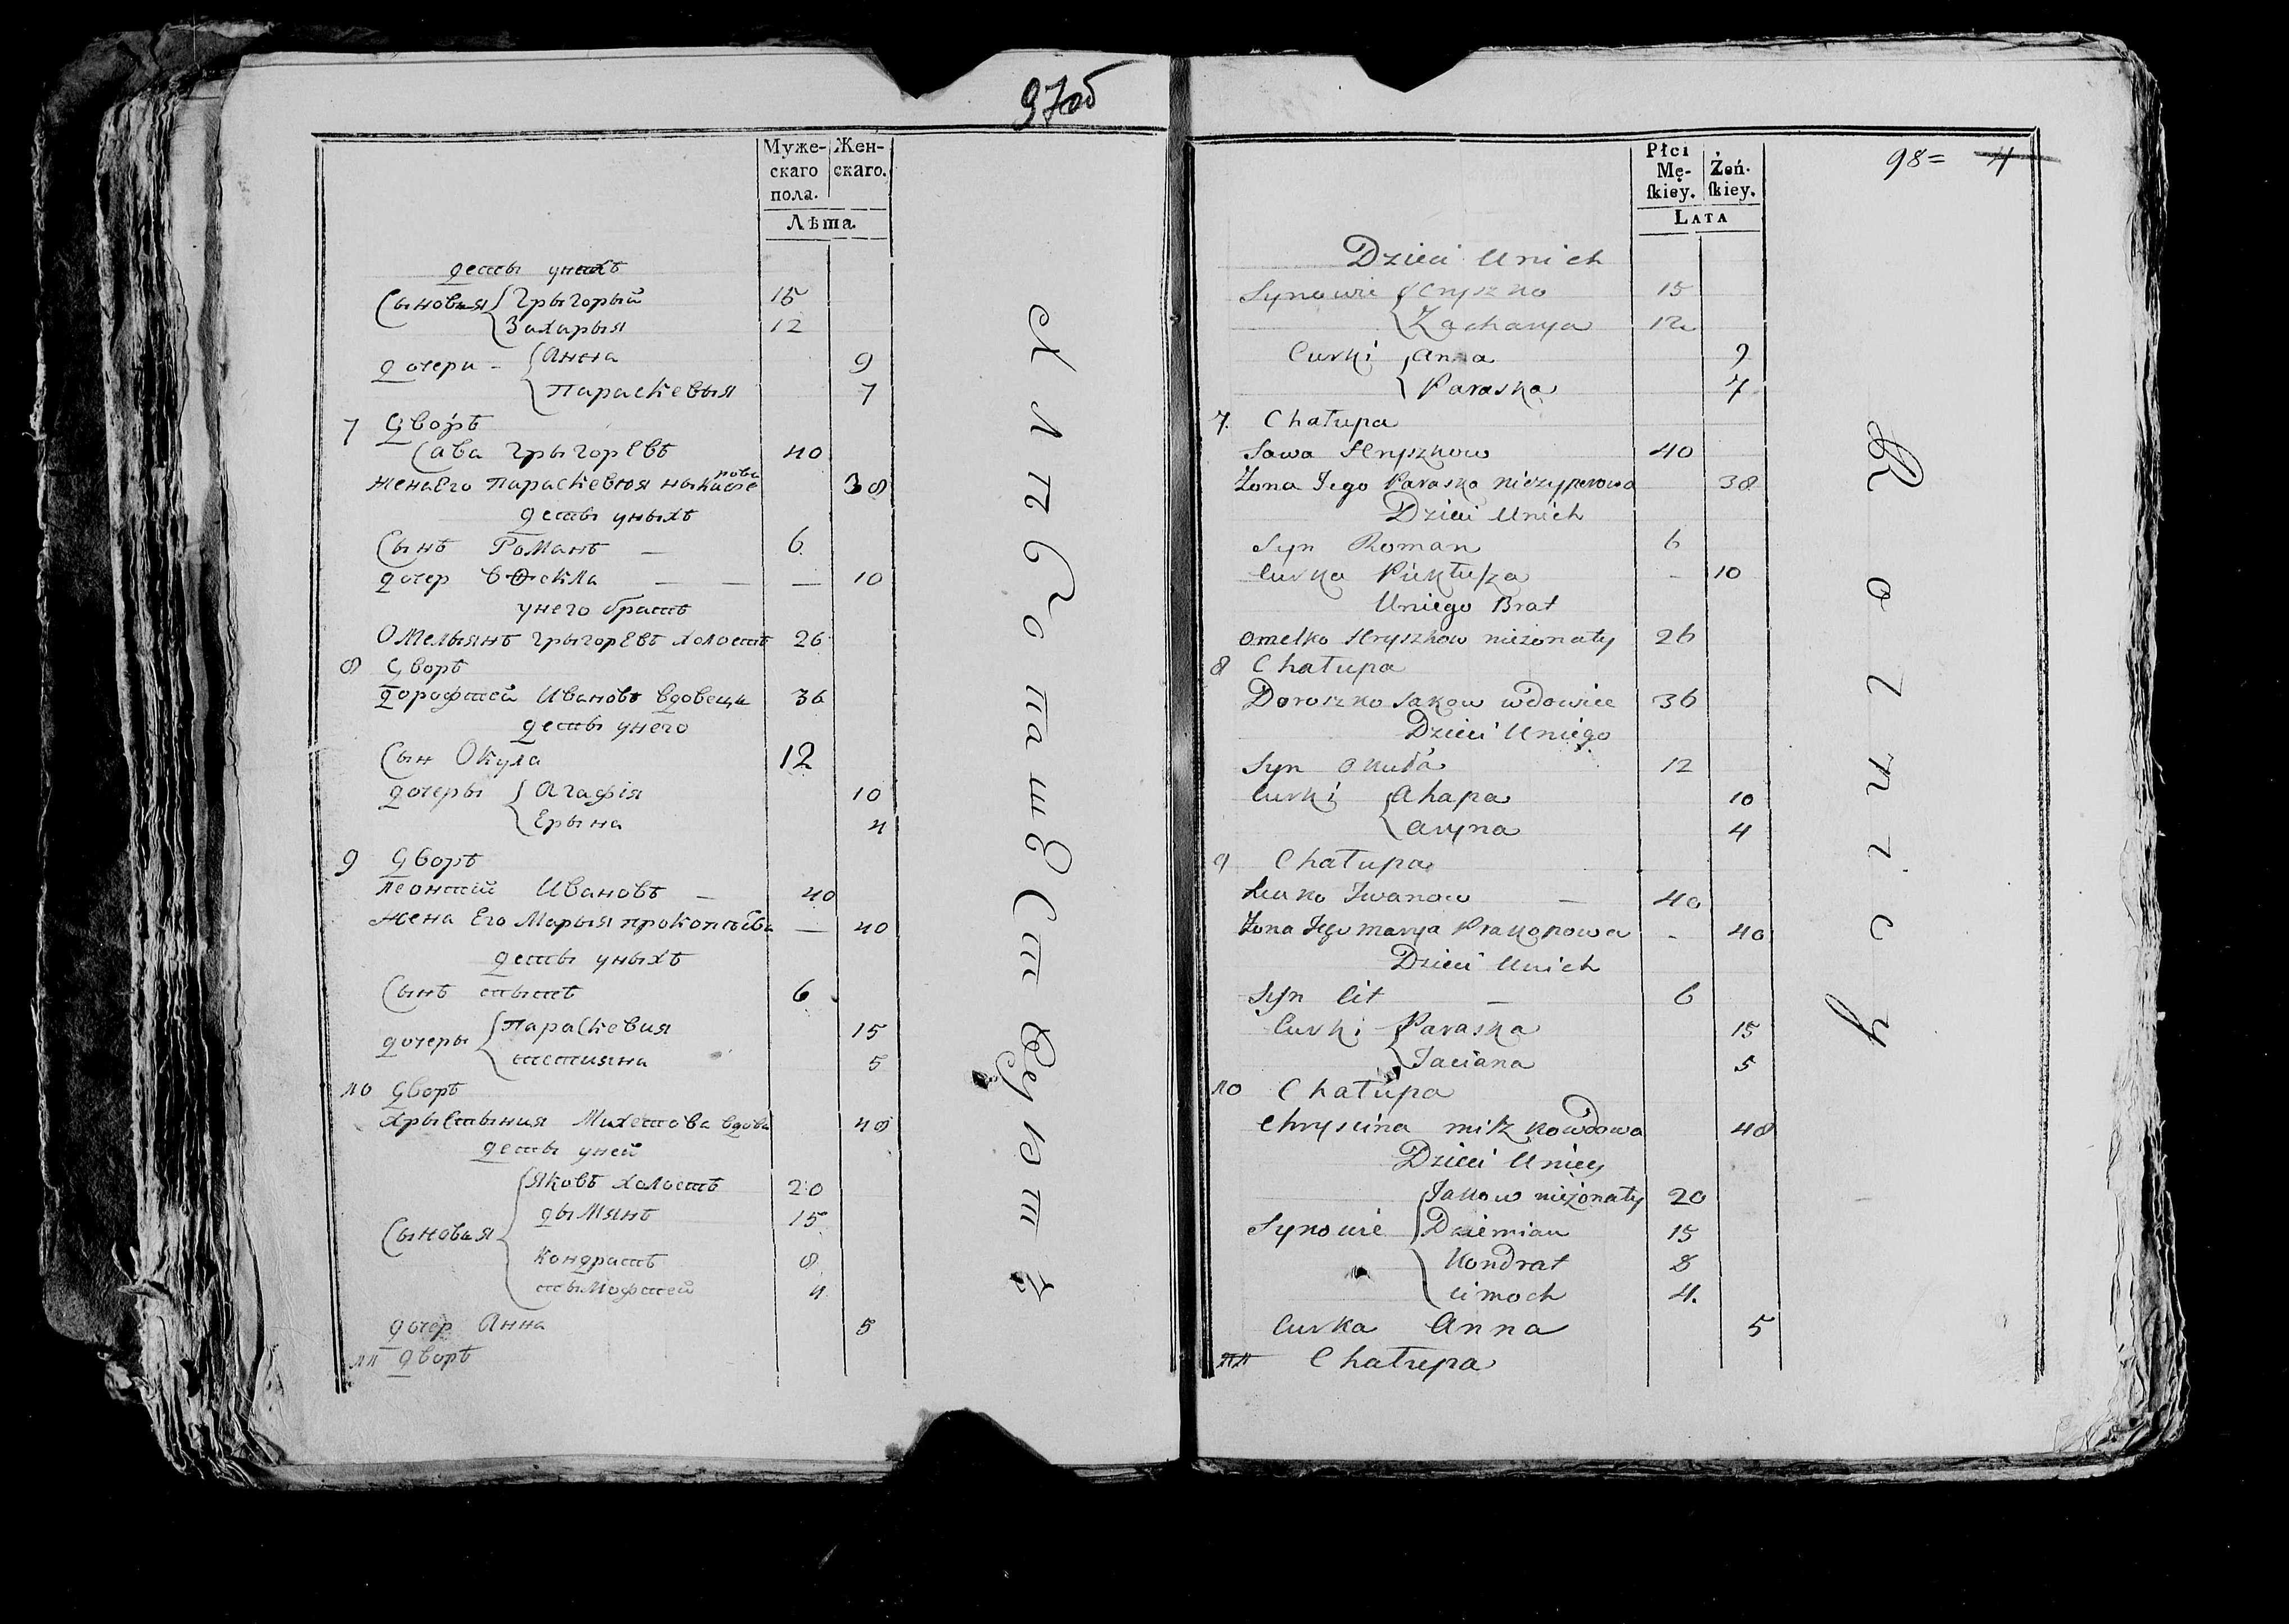 97об
Муже-
скаго
пола.
Жен-
скаго.
Лѣта.
дети унихъ
Сыновья Грыгорый 15
Захарыя 12
дочери - Анна 9
Параскевыя 7
7 Дворъ
Сава Грыгоревъ 40
жена Его Параскевия 38
дети уныхъ
Сынъ Романъ — 6
дочер — — — 10
унего братъ
Омельянъ Грыгоревъ холостъ 26
8 Дворъ
Дорофтей Ивановъ вдовецъ 36
дети унего
Сын Окула 12
дочеры Агафія 10
Ерына 4
9 Дворъ
Леонтий Ивановъ — 40
жена Его Марыя — 40
дети уныхъ
Сынъ тытъ 6
дочеры Параскевия 15
тетияна 5
10 Дворъ
Хрыстыния вдова 48
дети уней
Сыновья Яковъ холостъ 20
дымянъ 15
Кондратъ 8
тымофтей 4
дочер Анна 5
11 дворъ
98= 4
Płci
Mę-
ſkiey.
Żeń-
ſkiey.
LATA
Dzieci Unich
Synowie Hryszko 15
Zacharya 12
Curki Anna 9
Paraska 7
7. Chałupa
Sawa Hryszkow 40
Żona Jego Paraska Niczyperowa 38
Dzieci Unich
Syn Roman 6
Curka - 10
Uniego Brat
Omelko Hryszkow nieżonaty 26
8 Chałupa
Doroszko wdowiec 36
Dzieci Uniego
Syn Okuła 12
Curki Ahapa 10
Aryna 4
9 Chałupa
Iwanow — 40
Żona Jego Marya Prakopowa - 40
Dzieci Unich
Syn Cit — 6
Curki Paraska 15
Taciana 5
10 Chałupa
Chryscina wdowa 48
Dzieci Uniey
Synowie Jakow nieżonaty 20
Dziemian 15
Kondrat 8
Cimoch 4.
Curka Anna 5
11 Chałupa